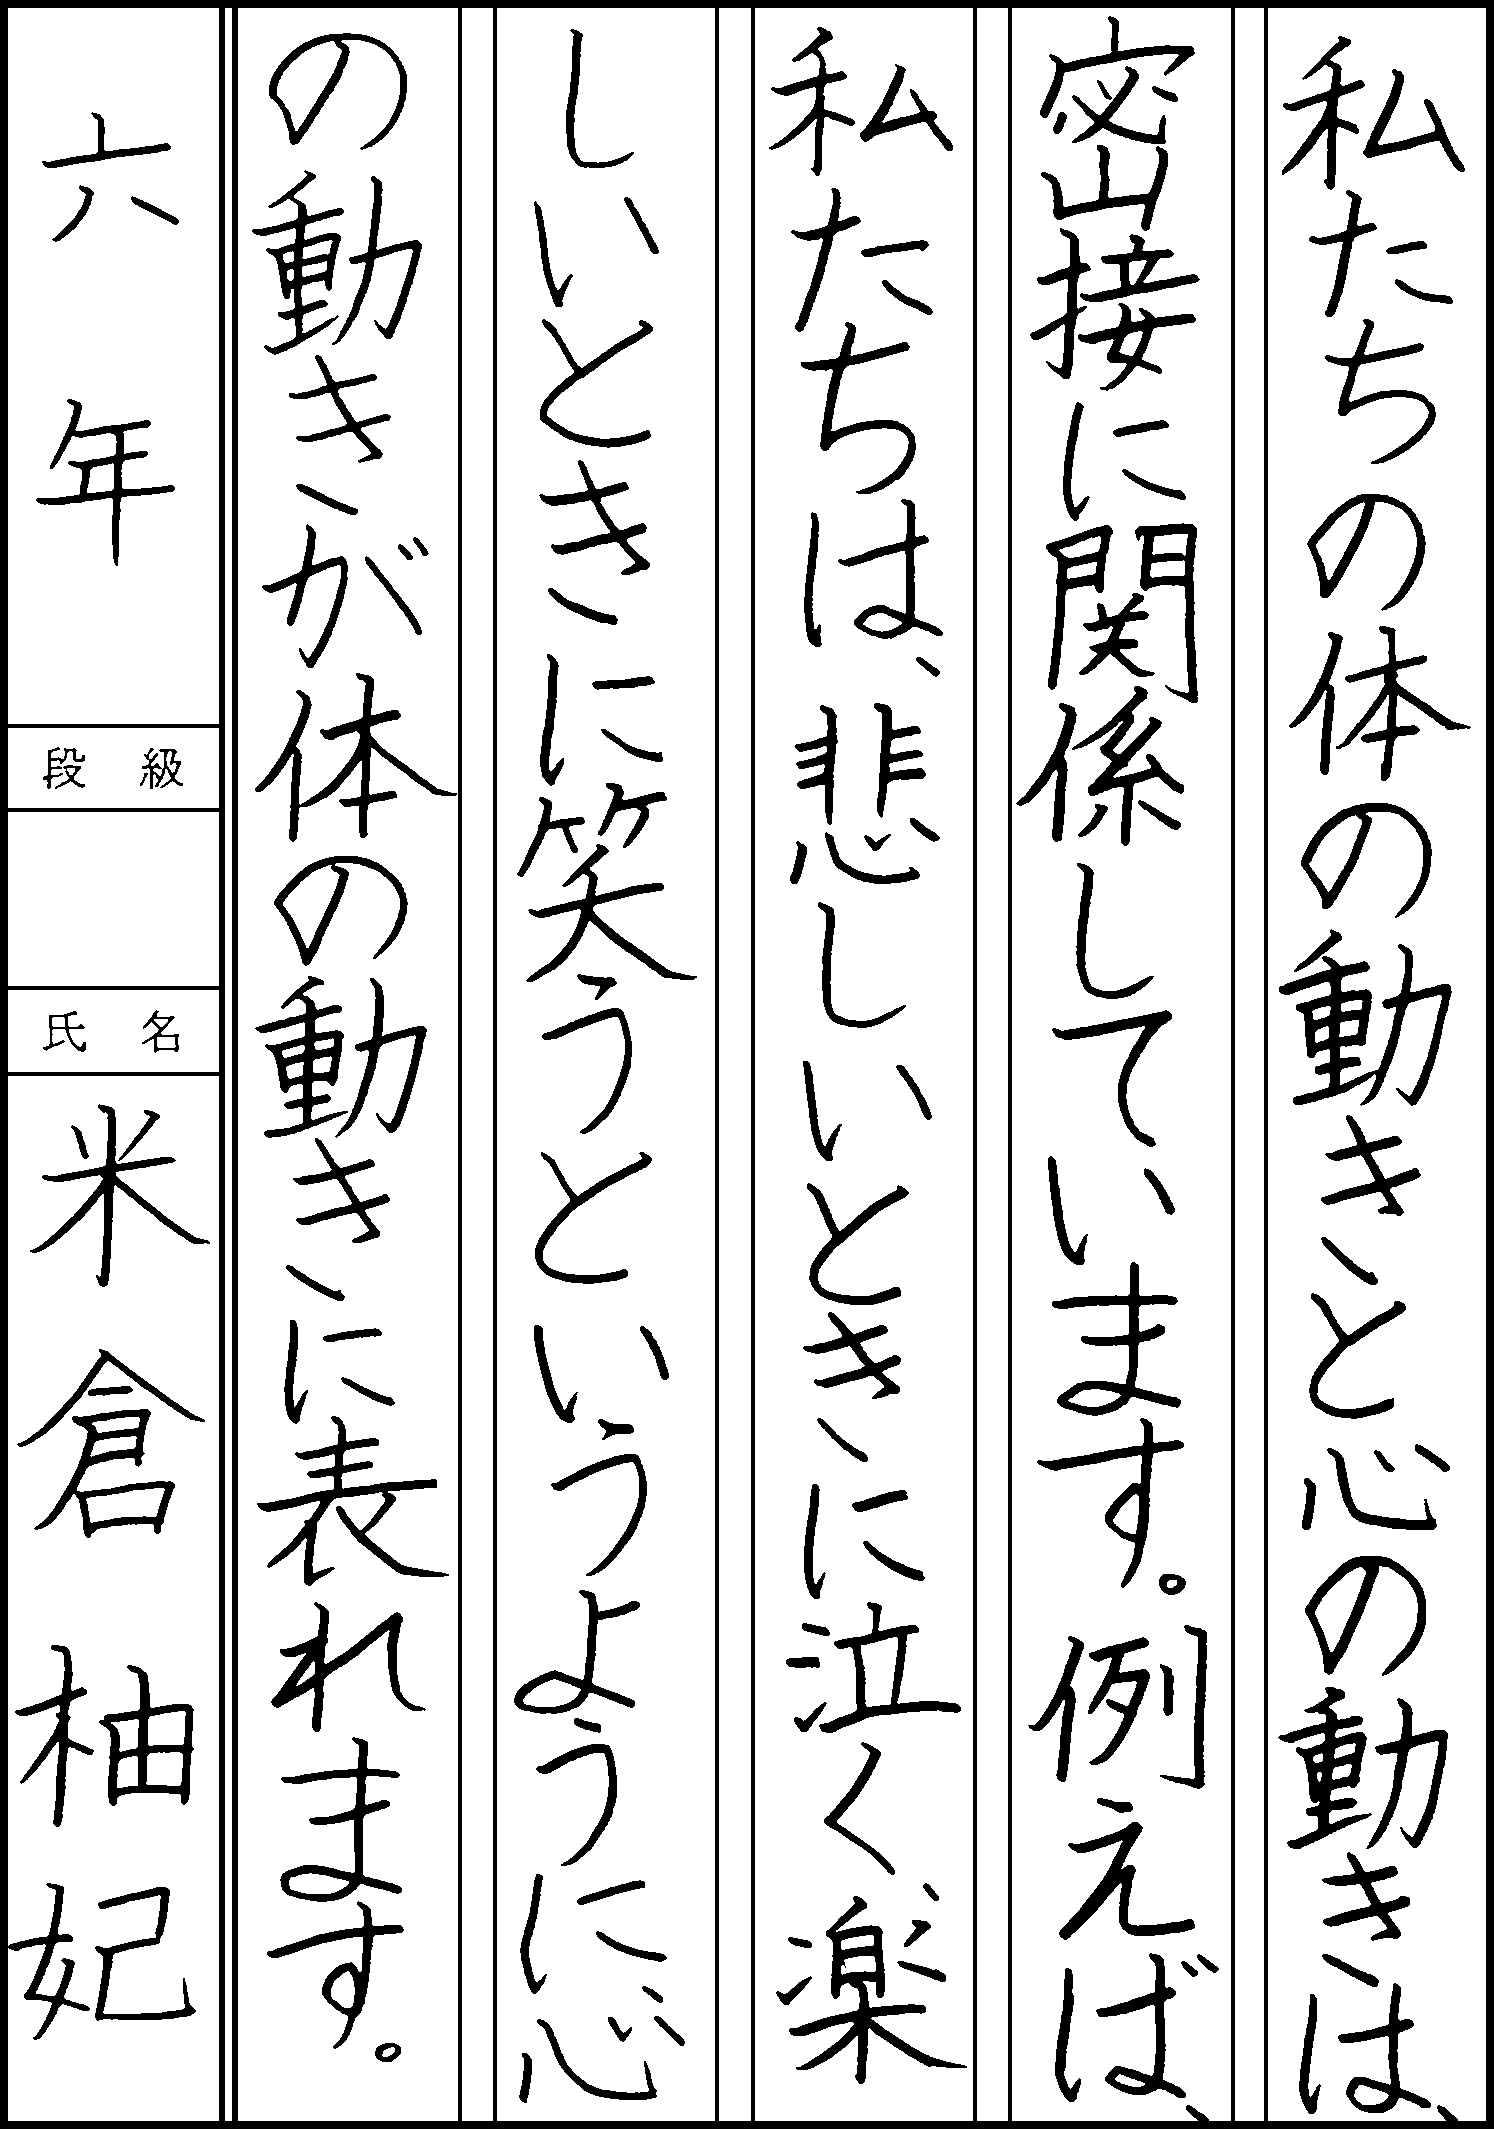 私たちの体の動きと心の動きは、
密接に関係しています。例えば、
私たちは、悲しいときに泣く楽
しいときに笑うというように心
の動きが体の動きに表れます。
六年
段級
氏名
米倉柚妃